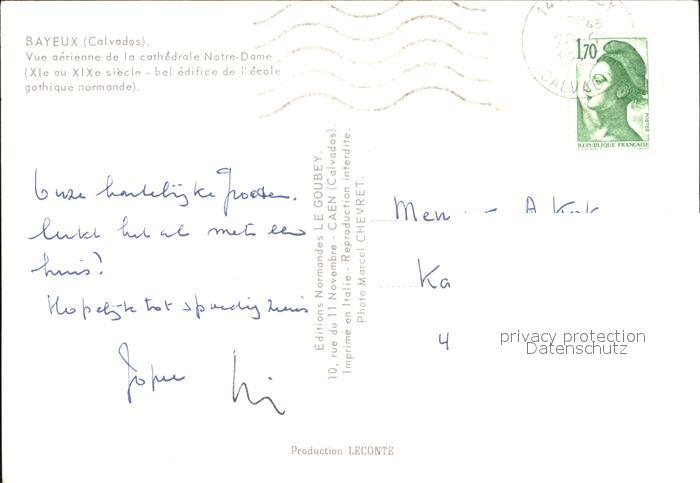 BAYEUX (Calvados).
Vue aérienne de la cathédrale Notre-Dame
(XIe au XIXe siècle - bel édifice de l'école
gothique normande).
Onze hartelijke Groeten.
Lukt het al met een
huis?
Hopelijk tot spoedig ziens
Editions Normandes LE GOUBEY.
10, rue du 11 Novembre - CAEN (Calvados).
Imprimé en Italie - Reproduction interdite.
Photo Marcel CHEVRET.
1,70
POSTES
REPUBLIQUE FRANÇAISE
CALVADOS
Men
Ka
4
privacy protection
Datenschutz
Production LECONTE